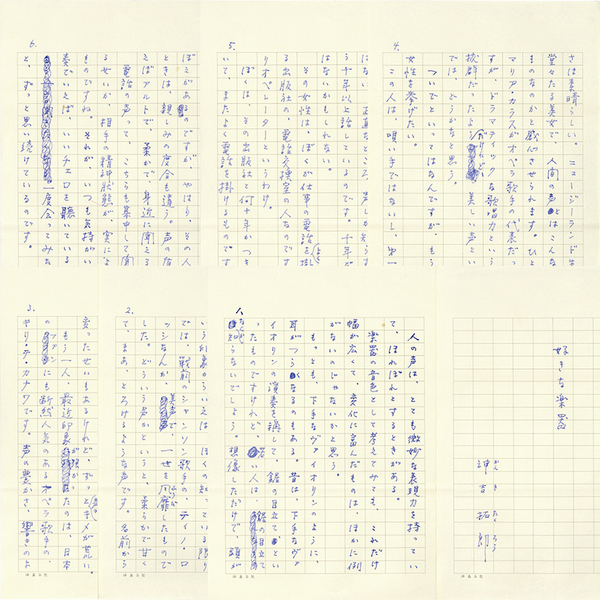 好きな楽器
神吉拓郎
かんき たくろう
1.
人の声は、とても微妙な表現力を持ってい
て、ほれぼれとするときがある。
楽器の音色として考えてみても、これだけ
幅が広くて、変化に富んだものは、ほかに例
がないのじゃないかと思う。
もっとも、下手なヴァイオリンのように、
耳がつらくなるのもある。昔は、下手なヴァ
イオリンの演奏を称して、鋸の目立てとい
ったものですけれど、若い人は、鋸の目立て
なんて知らないでしょう。想像しただけで、頭が
2.
からいえば、ぼくの知っている限り
では、戦前のシャンソン歌手の、ティノ・ロ
ッシなんか、美声で、一世を風靡したもので
した。どういう声かというと、柔らかで甘く
て、まあ、とろけるような声です。名前から
3.
変ったせいもあるけれど、ずっとキメが荒い。
もう一人、最近印象が強かったのは、日本
のファンにも断然人気のあるオペラ歌手の、
キリ・テ・カナワです。声の豊かさ、響きのよ
4.
さは素晴らしい。ニュージーランド生
堂々たる美女で、人間の声とはこんな
ものなのかと感心させられます。ひと
マリア・カラスがオペラ歌手の代表だっ
すが、ドラマティックな歌唱力という
抜群だったが、美しい声とい
では、どうかなと思う。
ついでといってはなんですが、もう
女性を挙げたい。
この人は、唄い手ではないし、第一
5.
にない。正直なところ、声しか知らず
う十年以上話しているのです。十年が
はないかもしれない。
その女性は、ぼくが仕事の電話をよく掛
る出版社の、電話交換室の人なのです
りオペレーターというわけ。
ぼくは、その出版社と何十年かつき
いて、またよく電話を掛けるものです
6.
ぼえがあるのですが、やはり、その人
ときは、親しみの度合も違う。声の質
えばアルトで、柔かで、身近に聞える
電話の声って、こちらも集中して聞
るせいか、相手の精神状態が実によ
ものですね。それが、いつも気持がい
奏でいえば、いいチェロを聴いている
一度会ってみた
と、ずっと思い続けているのです。